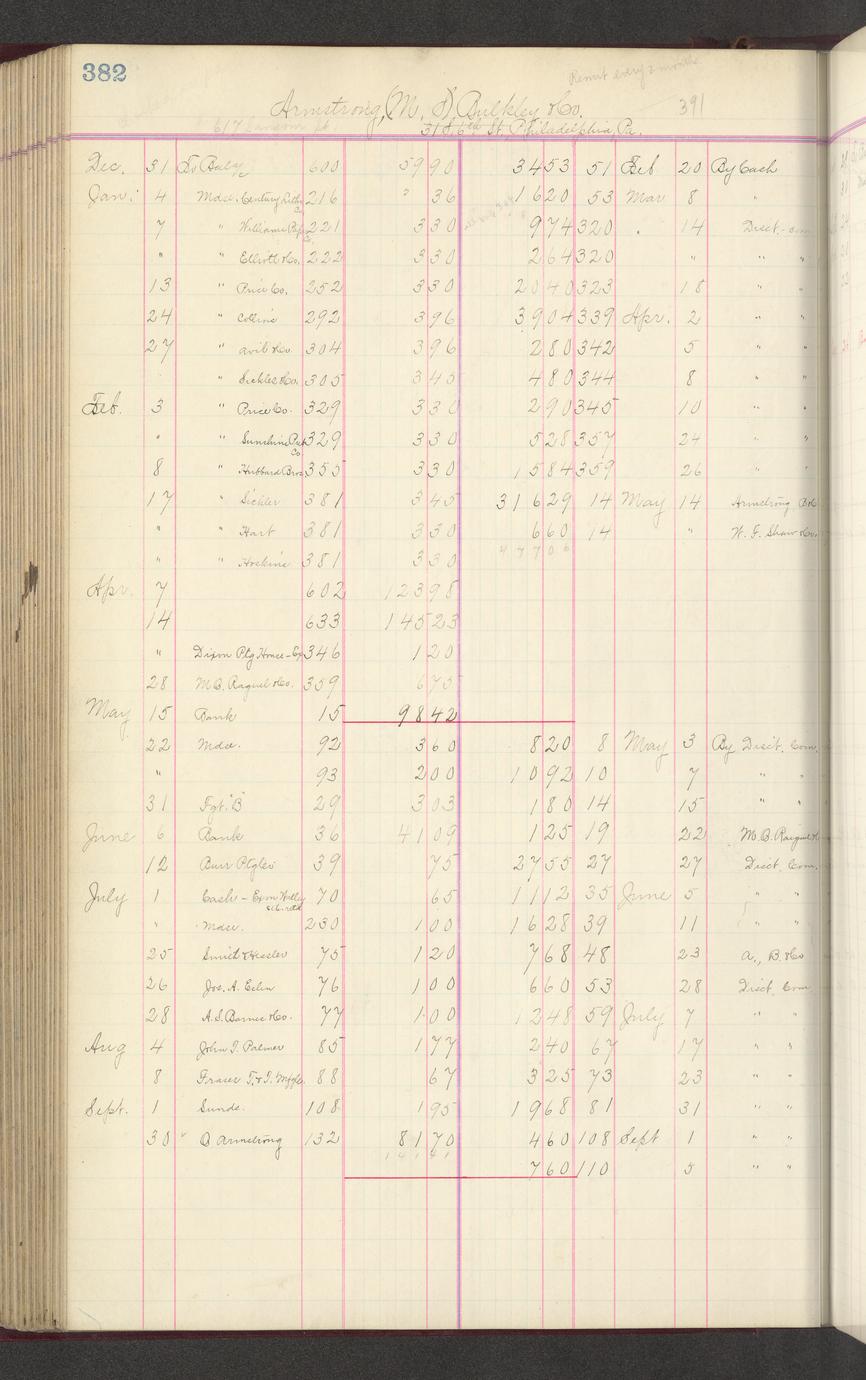 382
Remit every 2 months
Armstrong, (M. F.) Bulkley & Co. 391
617 Sansom St. 31 S. 6th St. Philadelphia, Pa.
Dec. 31 To Baly 600 59 90 34 53 51 Feb 20 By Cash
Jan. 4 Mdse. Century Litho Co. 216 " 36 16 20 53 Mar 8 "
7 " Williams Pap. Co. 221 3 30 9 74 320 " 14 Disct. - Com
" " Elliott & Co. 222 3 30 2 64 320 " " "
13 " Price Co. 252 3 30 20 40 323 18 " "
24 " Collins 292 3 96 39 04 339 Apr. 2 " "
27 " Avil & Co. 304 3 96 2 80 342 5 " "
" Sickles & Co. 305 3 45 4 80 344 8 " "
Feb. 3 " Price Co. 329 3 30 2 90 345 10 " "
" " Sunshine Pub Co 329 3 30 5 28 357 24 " "
8 " Hubbard Bros. 355 3 30 15 84 359 26 " "
17 " Sickler 381 3 45 316 29 14 May 14 Armstrong, B & Co
" " Hart 381 3 30 6 60 14 " W. F. Shaw & Co.
" " Hoskins 381 3 30 477 06
Apr. 7 602 123 98
14 633 145 23
" Dixon Ptg House - Ex 346 1 20
28 M. B. Raguel & Co. 359 6 75
May 15 Bank 15 98 42
22 Mdse. 92 3 60 8 20 8 May 3 By Disct. Com.
" 93 2 00 10 92 10 7 " "
31 Fgt. "B" 29 3 03 1 80 14 15 " "
June 6 Bank 36 41 09 1 25 19 22 M. B. Raiguel &
12 Burr Ptg Co 39 75 27 55 27 27 Disct. Com.
July 1 Cash - 70 65 11 12 35 June 5 " "
" Mdse. 230 1 00 16 28 39 11 " "
25 Smith & Hessler 75 1 20 7 68 48 23 A., B. & Co
26 Jos. A. Eslen 76 1 00 6 60 53 28 Disct. Com
28 A. S. Barnes & Co. 77 1 00 12 48 59 July 7 " "
Aug 4 John T. Palmer 85 1 77 2 40 67 17 " "
8 Fraser T. & T. 88 67 3 25 73 23 " "
Sept. 1 Sunds. 108 1 95 19 68 81 31 " "
30 " B Armstrong 132 81 70 4 60 108 Sept 1 " "
7 60 110 5 " "